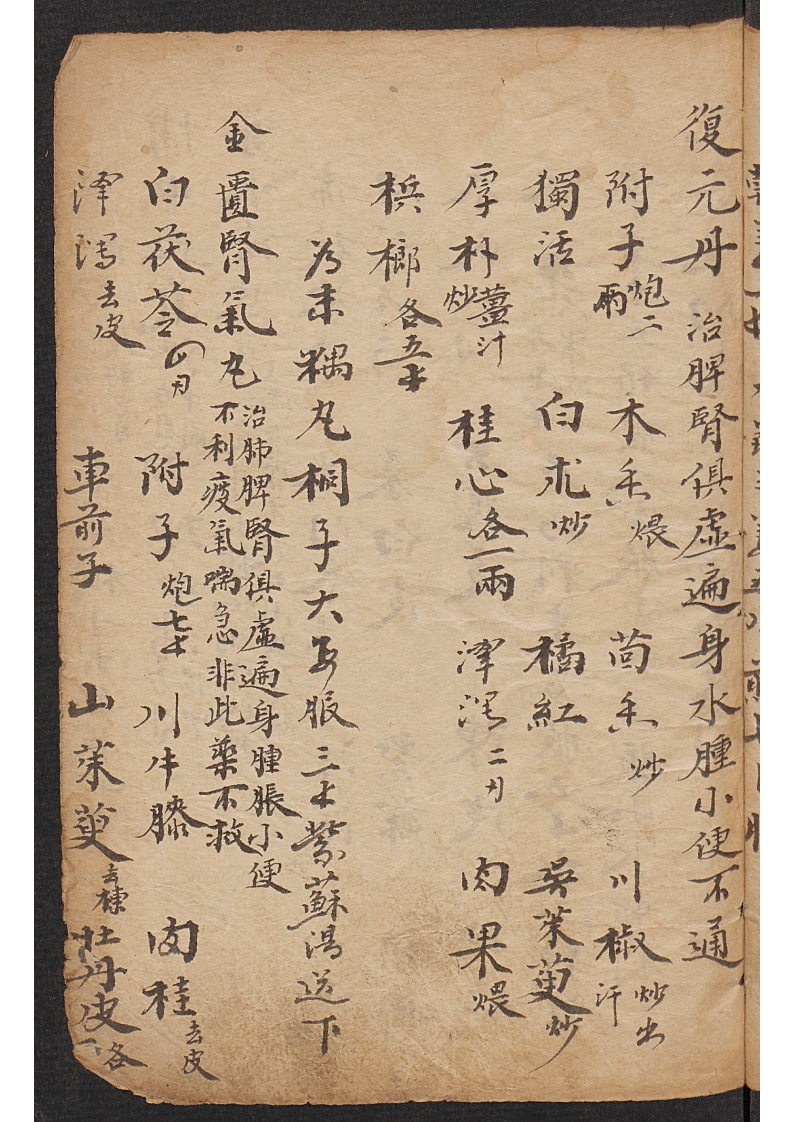 復元丹治脾腎俱虛遍身水腫小便不通
附子炮二兩 木香煨 茴香炒 川椒炒出汗
獨活 白朮炒 橘紅 吳茱萸炒
厚朴薑汁炒 桂心各一兩 澤瀉二刃 肉果煨
梹榔各五十
為末糯丸桐子大每服三十紫蘇湯送下
金匱腎氣丸治肺脾腎俱虛遍身腫脹小便不利痰氣喘急非此藥不救
白茯苓四刃 附子炮七十 川牛膝 肉桂去皮
澤瀉去皮 車前子 山茱萸去棟 牡丹皮各一